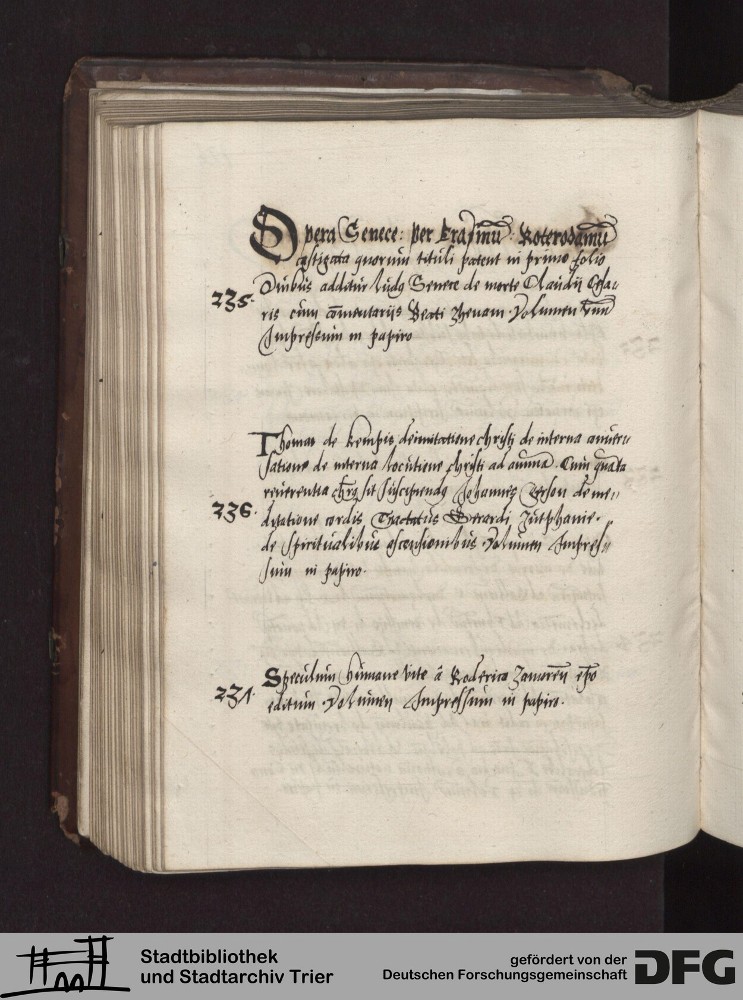 Opera Senece: per Erasmũ: Roterodamũ
castigata quorum tituli patent in primo folio
Quibus additur ludg Senece de morte Claudij Cesa-
235. ris cum cõmentarijs Beati Rhenani. Volumen vnũ
Impressum in papiro
Thomas de Kempis de imitatione christi de interna conuer-
satione de interna locutione christi ad animã. Cum quãta
reuerentia chrs sit suscipiendg Johannes Gerson de me-
236. ditatione cordis Tractatus Gerardi Zutphanie.
de spiritualibus ascensionibus. Volumen Impres-
sum in papiro.
Speculum humane vite a Roderico Zamoreñ epo
237. editum. Volumen Impressum in papiro.
Stadtbibliothek
und Stadtarchiv Trier
gefördert von der
Deutschen Forschungsgemeinschaft
DFG